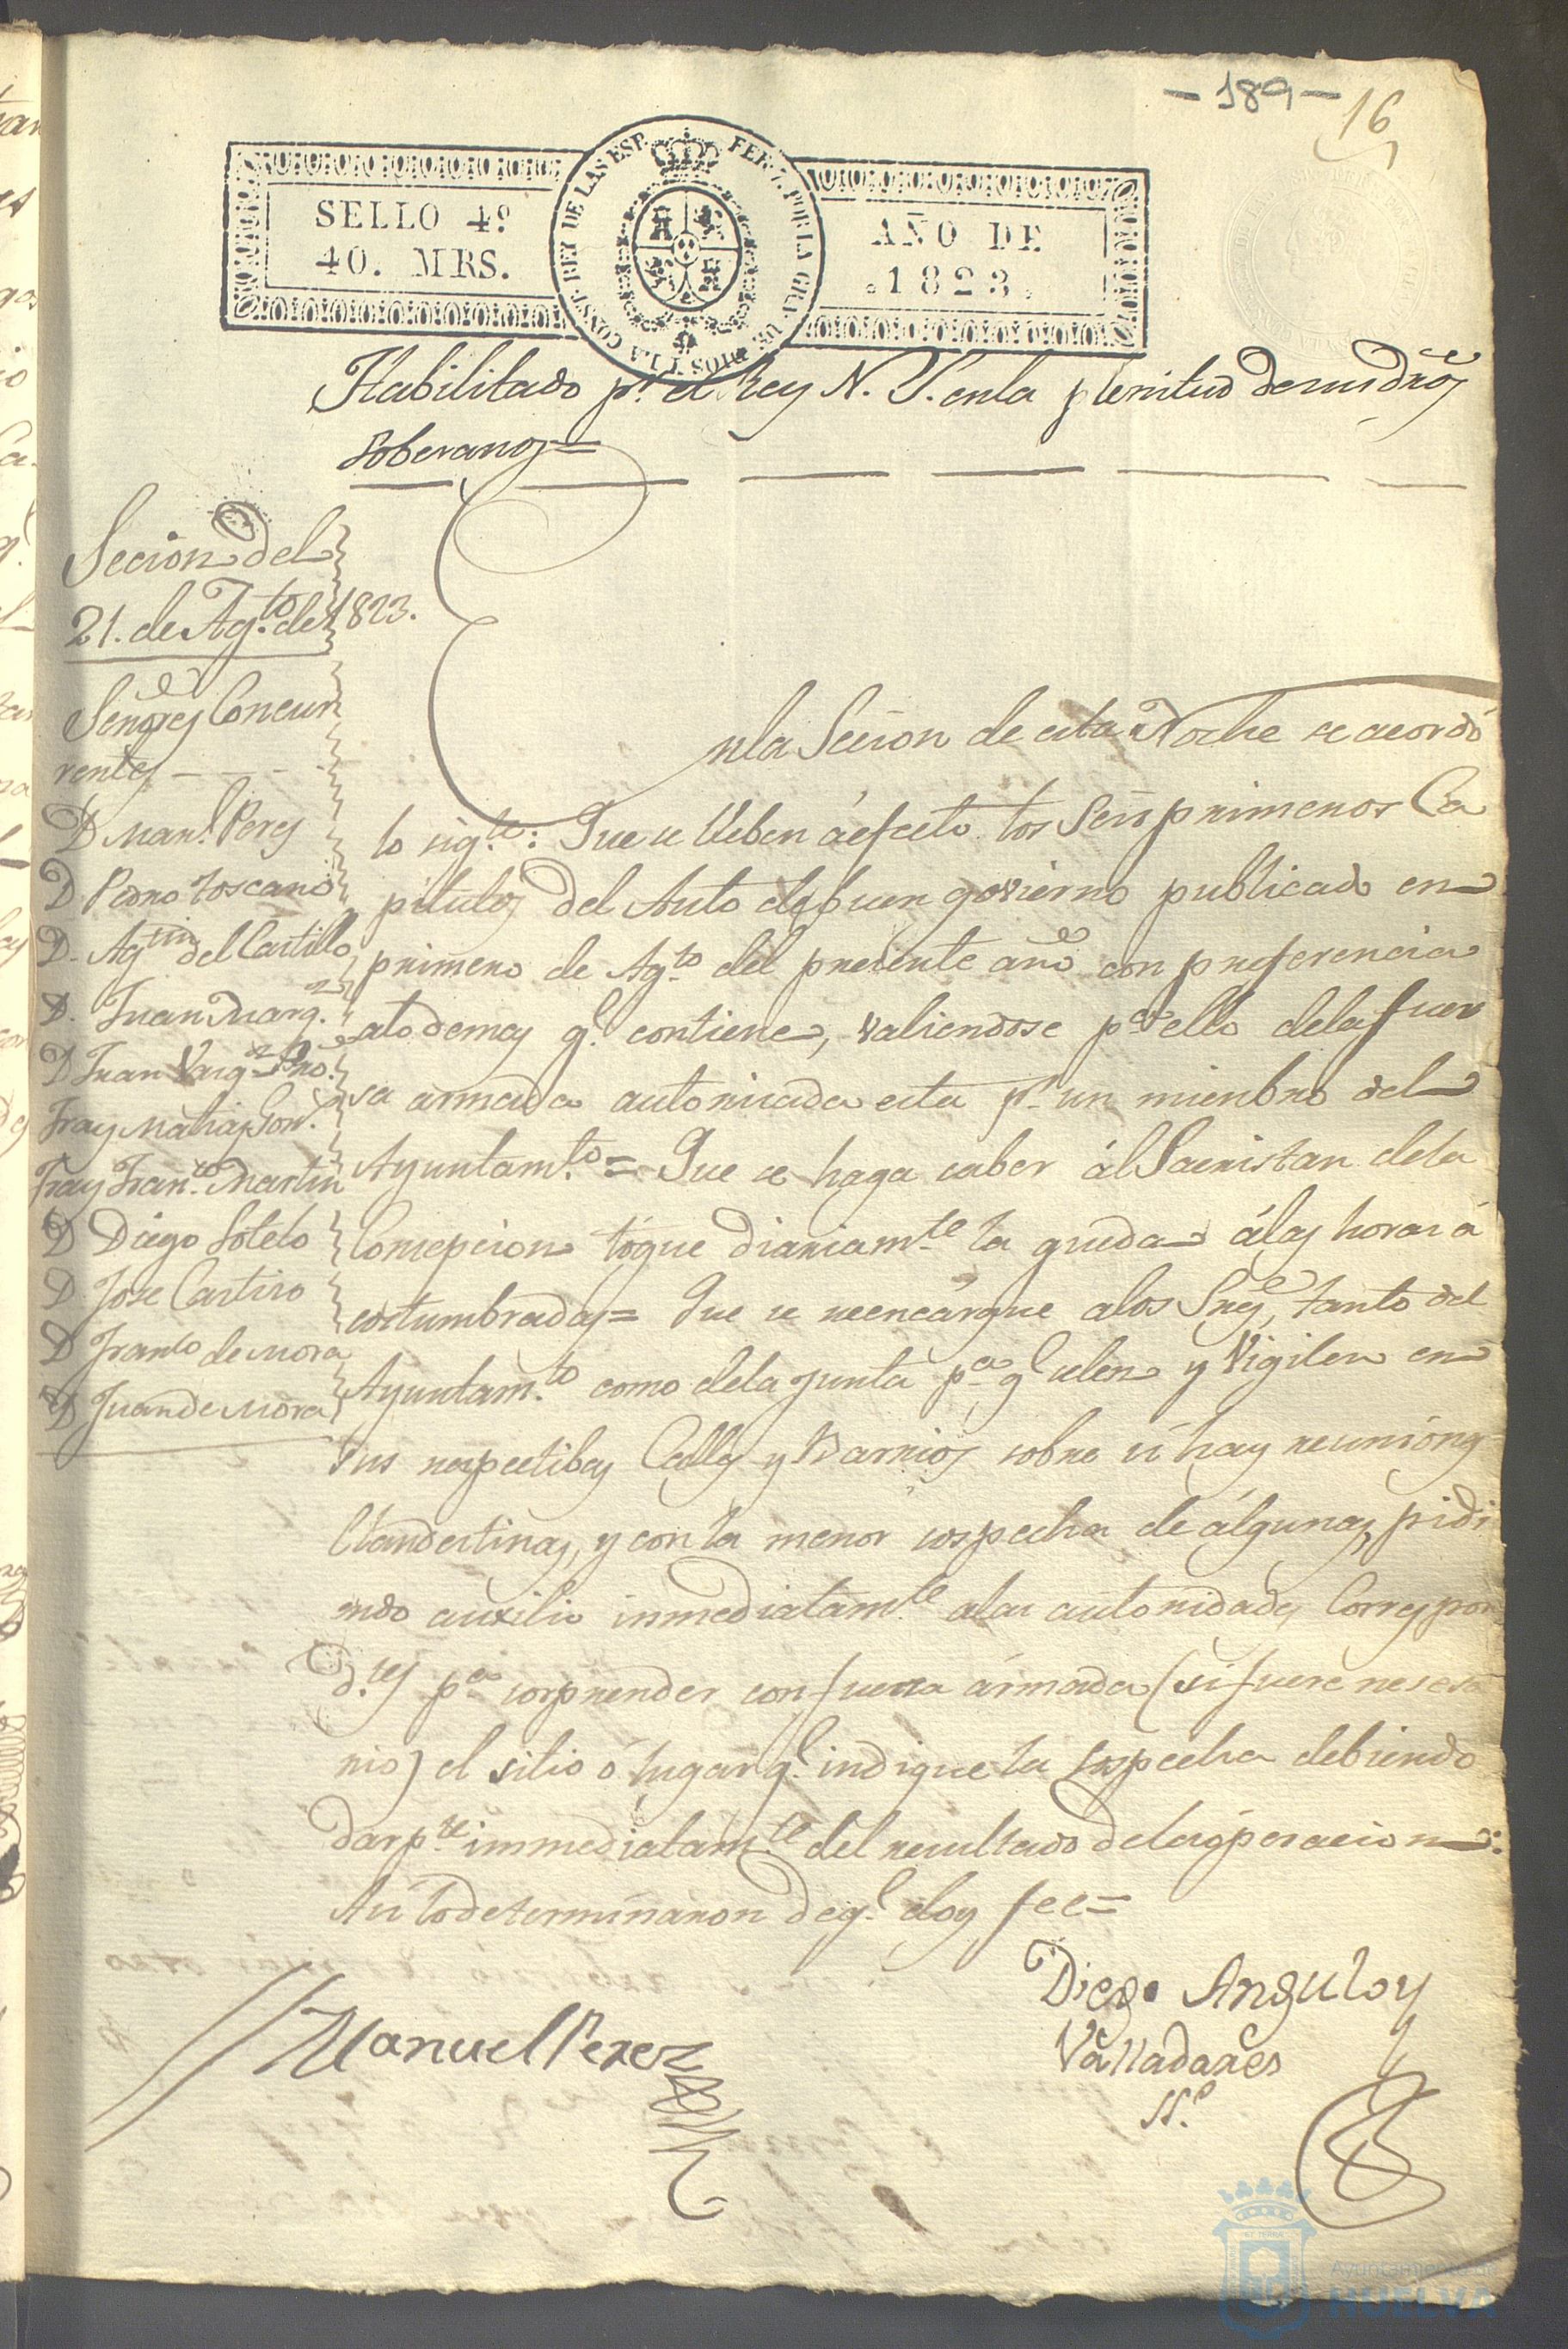 - 189 -
16
SELLO 4º
40. MRS.
FER. 7. POR LA GRA. DE DIOS Y LA CONST. REY DE LAS ESP.
AÑO DE
1823.
Habilitado pr. el Rey N. S. en la plenitud de sus dros
soberanos =
Secion del
21. de Agto. de 1823.
Señores Concur
rentes
D Manl. Peres
D Pedro Toscano
D. Agtin del Castillo
D. Juan Marqz.
D Juan Varqz Pro.
Fray Matias Gonz.
Fray Franco. Martin
D Diego Sotelo
D Jose Castiro
D Franco de Mora
D Juan de Mora
En la Secion de esta Noche se acordó
lo sigte.: Que se lleben áefecto los Seis primeros Ca
pitulos del Auto de buen govierno publicado en
primero de Agto del presente año con preferencia
alo demas q. contiene, valiendose pa ello dela fuer
sa armada autorisada esta pr un miembro del
Ayuntamto. = Que se haga saber ál Sacristan dela
Concepcion tóque diariamte la queda álas horas á
costumbradas = Que se reencárgue alos Sres, tanto del
Ayuntamto como dela junta pa q selen y Vigilen en
sus respectibas Calles y Barrios sobre si hay reunions
Clandestinas, y con la menor sospecha de álgunas, pidi
endo auxilio inmediatamte alas autoridades Correspon
d.tes pa sorprender con fuerza ármada (si fuere nesesa
rio) el sitio ó lugar q. indique la sospecha debiendo
dar pte immediatamte del resultado dela óperacion:
Asi lo determinaron de q. doy fee =
Manuel Perez
Diego Angulo y
Valladares
SS.º
Ayuntamiento de
HUELVA